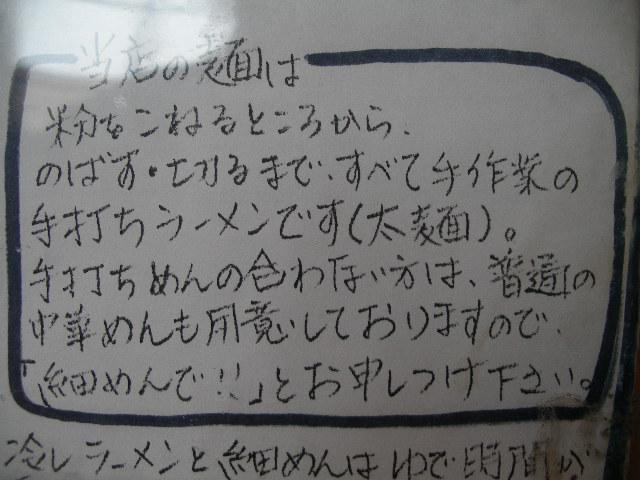 当店の麺は
粉をこねるところから、
のばす・切るまで、すべて手作業の
手打ちラーメンです(太麺)。
手打ちめんの合わない方は、普通の
中華めんも用意しておりますので、
「細めんで!!」とお申しつけ下さい。
冷しラーメンと細めんはゆで時間が